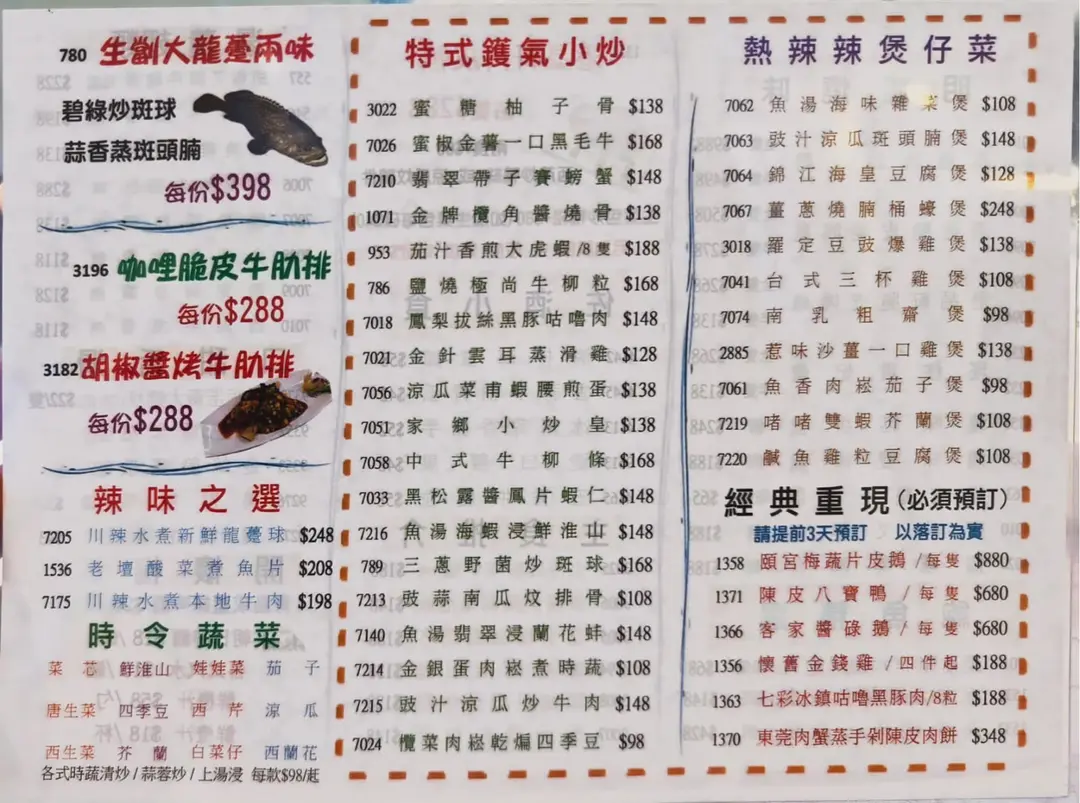 780 生劏大龍躉兩味
碧綠炒斑球
蒜香蒸斑頭腩
每份$398
3196 咖哩脆皮牛肋排
每份$288
3182 胡椒醬烤牛肋排
每份$288
辣味之選
7205 川辣水煮新鮮龍躉球 $248
1536 老壇酸菜煮魚片 $208
7175 川辣水煮本地牛肉 $198
時令蔬菜
菜芯 鮮淮山 娃娃菜 茄子
唐生菜 四季豆 西芹 涼瓜
西生菜 芥蘭 白菜仔 西蘭花
各式時蔬清炒/蒜蓉炒/上湯浸 每款$98/起
特式鑊氣小炒
3022 蜜糖柚子骨 $138
7026 蜜椒金薯一口黑毛牛 $168
7210 翡翠帶子賽螃蟹 $148
1071 金牌欖角醬燒骨 $138
953 茄汁香煎大虎蝦/8隻 $188
786 鹽燒極尚牛柳粒 $168
7018 鳳梨拔絲黑豚咕嚕肉 $148
7021 金針雲耳蒸滑雞 $128
7056 涼瓜菜甫蝦腰煎蛋 $138
7051 家鄉小炒皇 $138
7058 中式牛柳條 $168
7033 黑松露醬鳳片蝦仁 $148
7216 魚湯海蝦浸鮮淮山 $148
789 三蔥野菌炒斑球 $168
7213 豉蒜南瓜炆排骨 $108
7140 魚湯翡翠浸蘭花蚌 $148
7214 金銀蛋肉崧煮時蔬 $108
7215 豉汁涼瓜炒牛肉 $148
7024 欖菜肉崧乾煸四季豆 $98
熱辣辣煲仔菜
7062 魚湯海味雜菜煲 $108
7063 豉汁涼瓜斑頭腩煲 $148
7064 錦江海皇豆腐煲 $128
7067 薑蔥燒腩桶蠔煲 $248
3018 羅定豆豉爆雞煲 $138
7041 台式三杯雞煲 $108
7074 南乳粗齋煲 $98
2885 惹味沙薑一口雞煲 $138
7061 魚香肉崧茄子煲 $98
7219 啫啫雙蝦芥蘭煲 $108
7220 鹹魚雞粒豆腐煲 $108
經典重現(必須預訂)
請提前3天預訂 以落訂為實
1358 頤宮梅蔬片皮鵝/每隻 $880
1371 陳皮八寶鴨/每隻 $680
1366 客家醬碌鵝/每隻 $680
1356 懷舊金錢雞/四件起 $188
1363 七彩冰鎮咕嚕黑豚肉/8粒 $188
1370 東莞肉蟹蒸手剁陳皮肉餅 $348